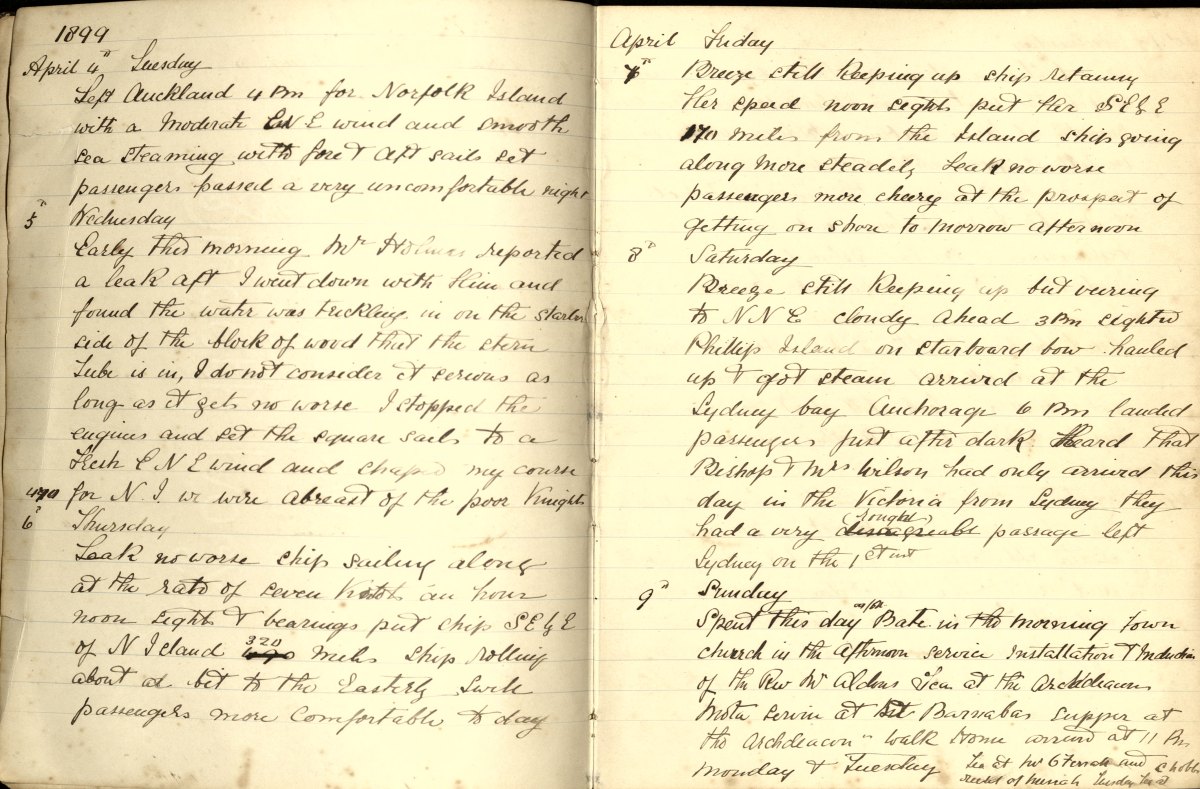 1899
April 4" Tuesday
Left Auckland 4 Pm for Norfolk Island
with a Moderate E N E wind and smooth
sea steaming with fore & aft sails set
passengers passed a very uncomfortable night
5" Wednesday
Early this morning Mr Holmes reported
a leak aft I went down with him and
found the water was trickling in on the starbo
side of the block of wood that the stern
Tube is in, I do not consider it serious as
long as it gets no worse I stopped the
engines and set the square sails to a
fresh E N E wind and shaped my course
for N. I. we were abreast of the poor Knights
6" Thursday
Leak no worse ship sailing along
at the rate of seven Knots an hour
noon sights & bearings put ship S E by E
320
of N Island miles ship rolling
about a bit to the Easterly swell
passengers more comfortable to day
April Friday
7" Breeze still Keeping up ship retaining
Her speed noon sights put her S E by E
170 miles from the Island ship going
along more steadily Leak no worse
passengers more cheery at the prospect of
getting on shore to morrow afternoon
8" Saturday
Breeze still Keeping up but veering
to N N E cloudy ahead 3 Pm sighted
Phillip Island on starboard bow hauled
up & got steam arrived at the
Sydney bay Anchorage 6 Pm landed
passengers just after dark Heard that
Bishop & Mrs Wilson had only arrived this
day in the Victoria from Sydney they
rough
had a very disagreeable passage left
Sydney on the 1st inst
9" Sunday
Spent this day Bate in the morning Town
church in the afternoon service Installation & Induction
of the Rev Mr Aldous Tea at the Archdeacons
Mota service at St Barnabas supper at
the Archdeacon" walk Home arrived at 11 Pm
Monday & Tuesday Tea at Mr and
Tuesday